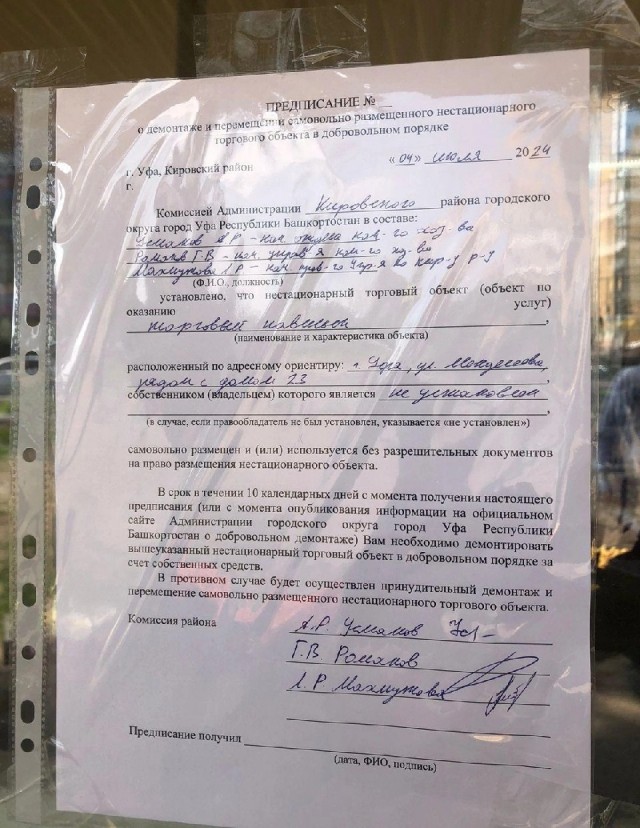 ПРЕДПИСАНИЕ № __
о демонтаже и перемещении самовольно размещенного нестационарного
торгового объекта в добровольном порядке
г. Уфа, Кировский район «04» июля 2024
г.
Комиссией Администрации Кировского района городского
округа город Уфа Республики Башкортостан в составе:
Усманов А.Р. - нач. отдела ком-го хоз-ва
Романов Г.В. - нач. управ-я ком-го хо-ва
Махмутова Л.Р. - нач.
(Ф.И.О., должность)
установлено, что нестационарный торговый объект (объект по
оказанию услуг)
торговый павильон,
(наименование и характеристика объекта)
расположенный по адресному ориентиру: г. Уфа, ул.
рядом с домом 23,
собственником (владельцем) которого является не установлен
(в случае, если правообладатель не был установлен, указывается «не установлен»)
самовольно размещен и (или) используется без разрешительных документов
на право размещения нестационарного объекта.
В срок в течении 10 календарных дней с момента получения настоящего
предписания (или с момента опубликования информации на официальном
сайте Администрации городского округа город Уфа Республики
Башкортостан о добровольном демонтаже) Вам необходимо демонтировать
вышеуказанный нестационарный торговый объект в добровольном порядке за
счет собственных средств.
В противном случае будет осуществлен принудительный демонтаж и
перемещение самовольно размещенного нестационарного торгового объекта.
Комиссия района А.Р. Усманов
Г.В Романов
Л.Р Махмутова
Предписание получил
(дата, ФИО, подпись)